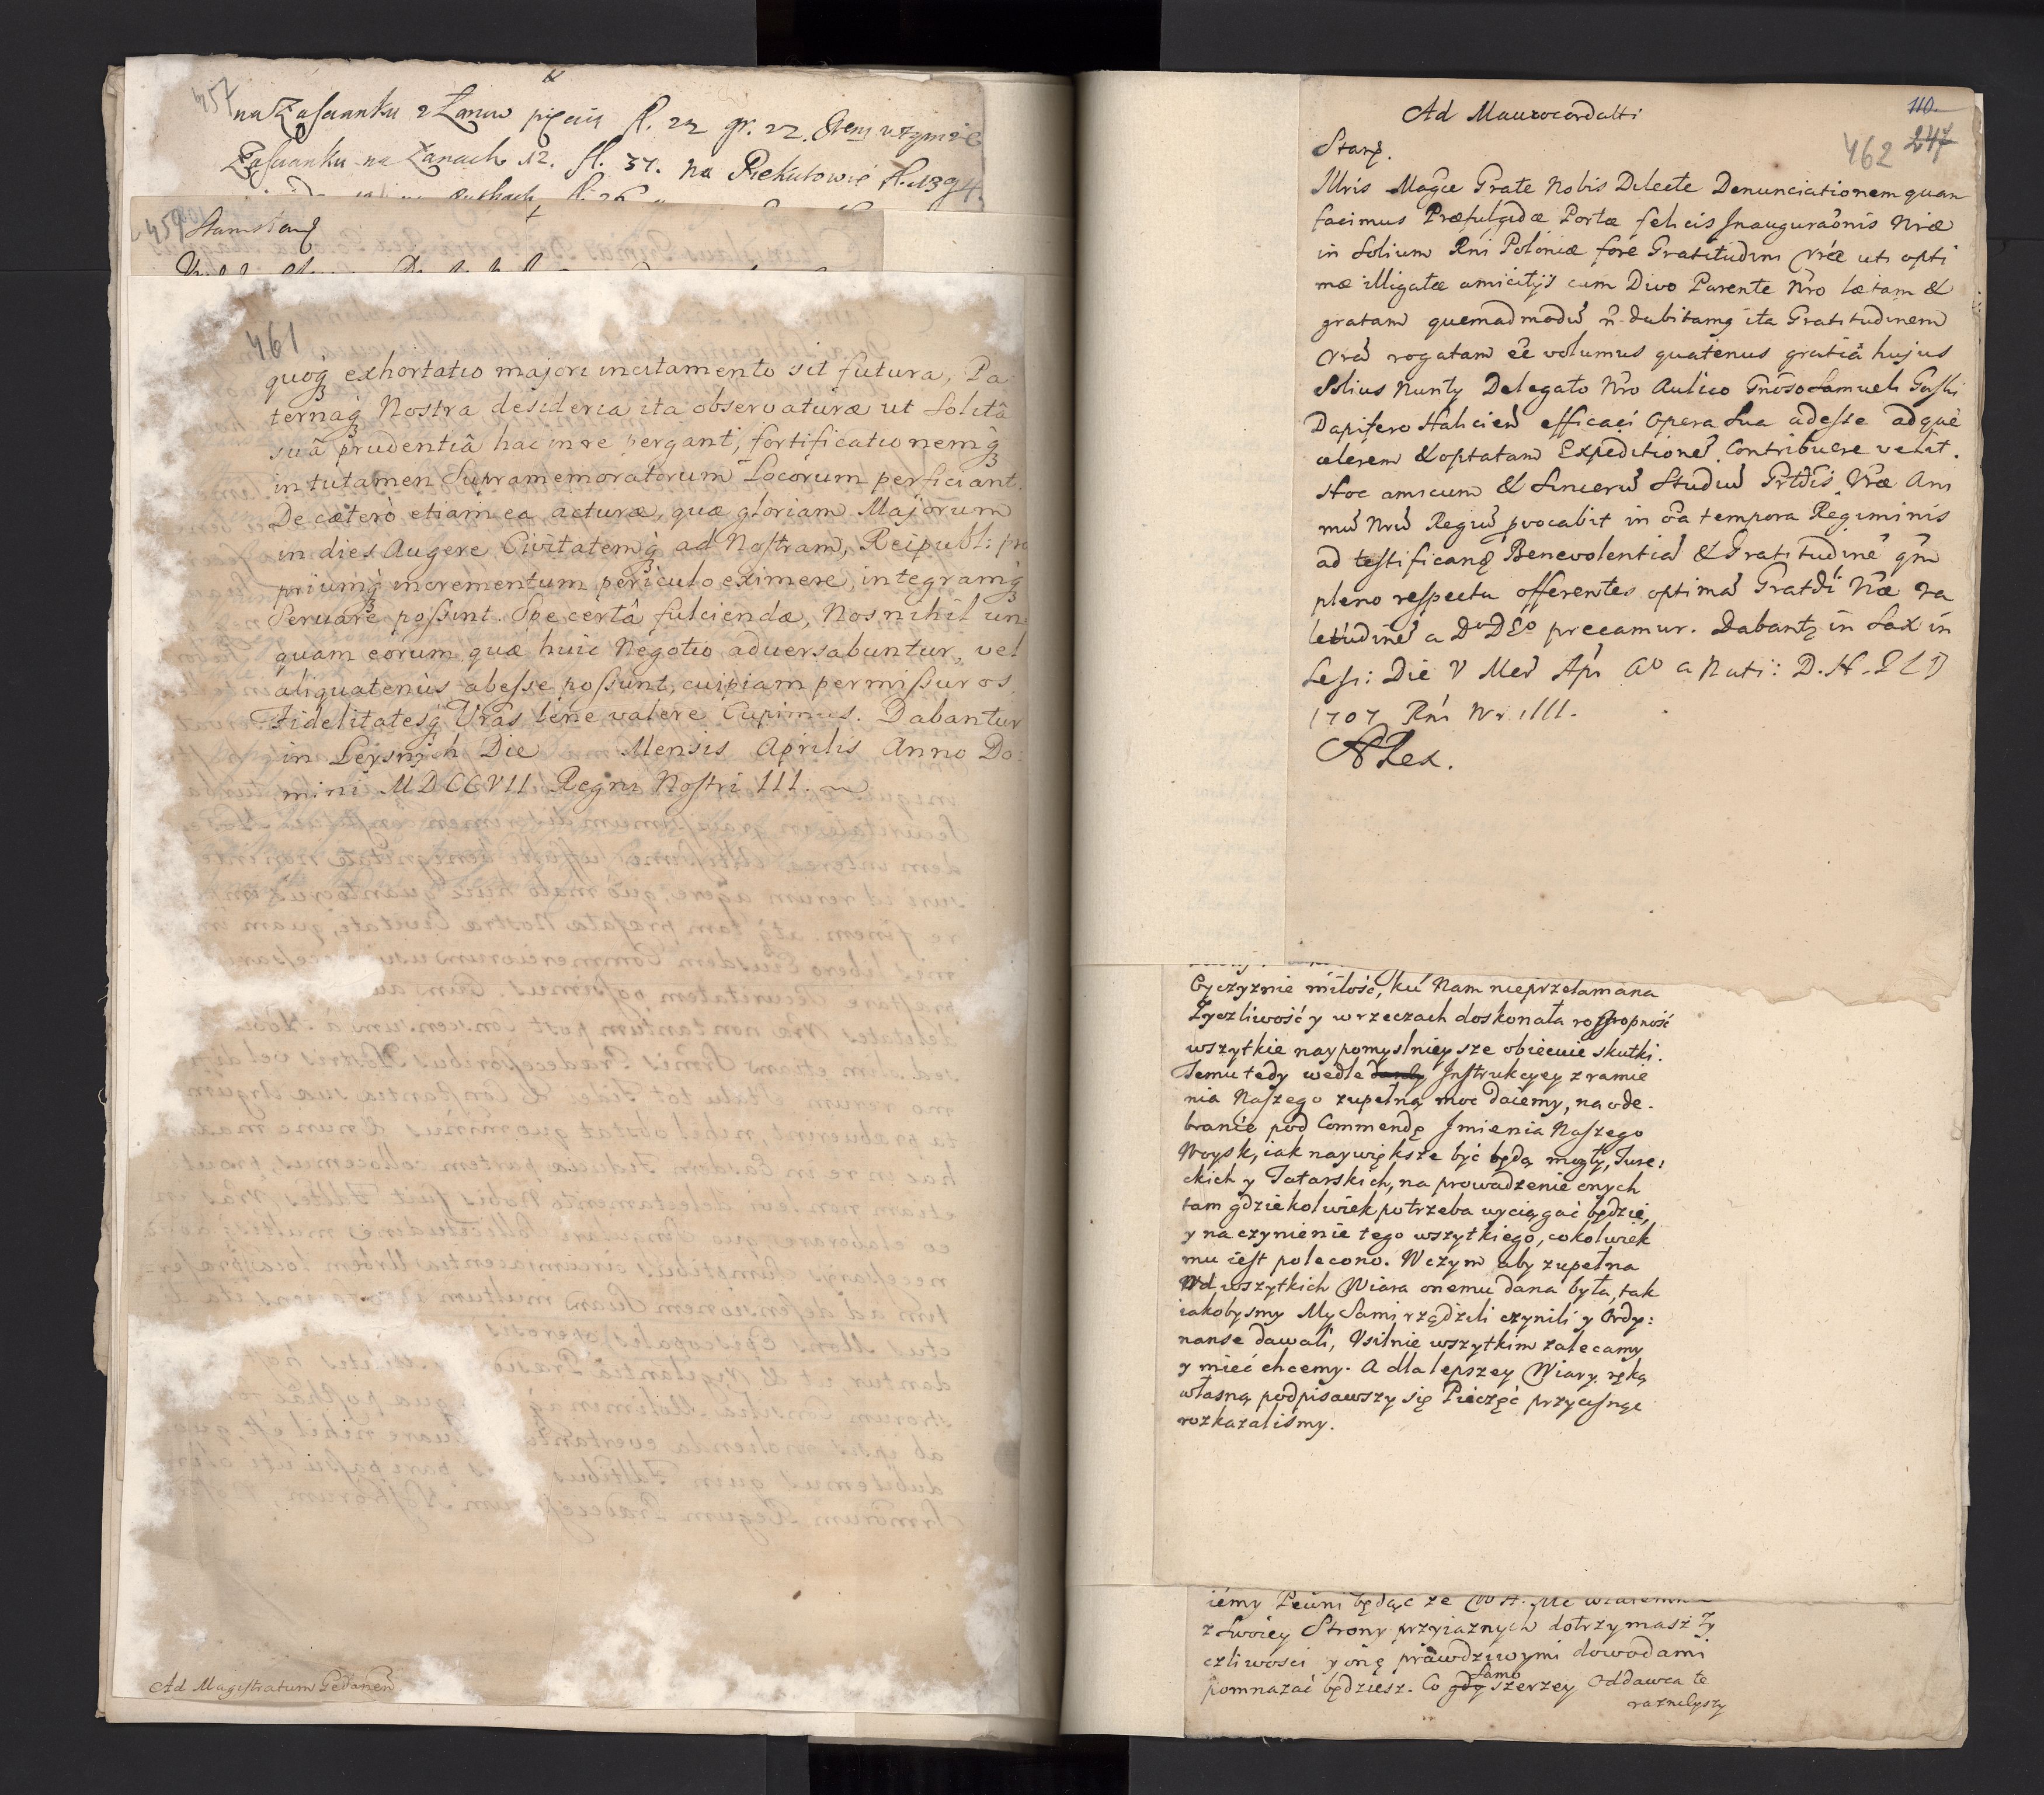 457
na Zascianku z Łanow pięciu fl. 22 gr. 22.
Zascianku na Łanach 12. fl. 37. na Piekutowie
459
461
quoq̃ exhortatio majori incitamento sit futura, Pa
ternaq̃ Nostra desideria ita observaturæ ut solitâ
suâ prudentiâ hac in re pergant, fortificationemq̃
in tutamen Supramemoratorum Locorum perficiant.
De cætero etiam ea acturæ, quæ gloriam Majorum
in dies Augere Civitatemq̃ ad Nostram, Reipubl: pro
priumq̃ incrementum periculo eximere, integramq̃
Servare possint. Spe certâ fulciendæ, Nos nihil un
quam eorum quæ huic Negotio adversabuntur, vel
aliquatenus abesse possunt, cuipiam permissuros.
Fidelitatesq̃ Vrãs bene valere Cupimus. Dabantur
in Leysnich Die Mensis Aprilis Anno Do:
mini MDCCVII Regni Nostri III.
Ad Magistratum Gedanen
Ad Maurocordatti
110.
462 247
Illris Magcæ Grate Nobis Dilecte Denunciationem quam
facimus Præfulgidæ Portæ felicis Inauguraõnis Nræ
in Solium Rni Poloniæ fore Gratitudini Vræ uti opti
mæ illigatæ amicitijs cum Divo Parente Nro lætam &
gratam quemadmodũ ñ dubitamq̃ ita Gratitudinem
Vrã rogatam eẽ volumus quatenus gratiâ hujus
Solius Nunty Delegato Nro Aulico Gnoso Samueli
Dapifero Halicien efficaci opera sua adesse adquẽ
celerem & optatam Expeditionẽ Contribuere velit.
Hoc amicum & Sincerũ Studiũ Grtdis Vræ Ani
mũ Nrũ Regiũ pvocabit in oa tempora Regiminis
ad testificand Benevolentiã & Gratitudinẽ
pleno respectu offerentes optimã Gratdi Næ va
letudinẽ a Do DEo precamur. Dabant in Sax in
Lesi: Die V Men Apr Ao a Nati: D. N.
1707 Rni Nri IIII.
Oyczyznie miłość, ku Nam nieprzełamana
Zyczliwość y w rzeczach doskonała rostropność
wszytkie naypomyslnieysze obiecuie skutki.
Temu tedy wedle Jnstrukcyey z ramie
nia Naszego zupełną moc daiemy, na ode.
branie pod Commendę Jmienia Naszego
Woysk, iak naywiększe być będą mogły, Ture:
ckich y Tatarskich, na prowadzenie onych
tam gdziekolwiek potrzeba wyciągać będzie,
y na czynienie tego wszytkiego, cokolwiek
mu iest polecono. W czym aby zupełna
od wszytkich Wiara onemu dana była, tak
iakobysmy My Sami rządzili czynili y Ordy:
nanse dawali, Vsilnie wszytkim zalecamy
y mieć chcemy. A dla lepszey Wiary ręką
własną podpisawszy się Pieczęć przycisnąć
rozkazalismy.
iemy Pewni będąc ze
z swoiey Strony przyiaznych dotrzymasz Zy
czliwosci y onę prawdziwymi dowodami
pomnazać będziesz. Co gdy samo szerzey Oddawca te